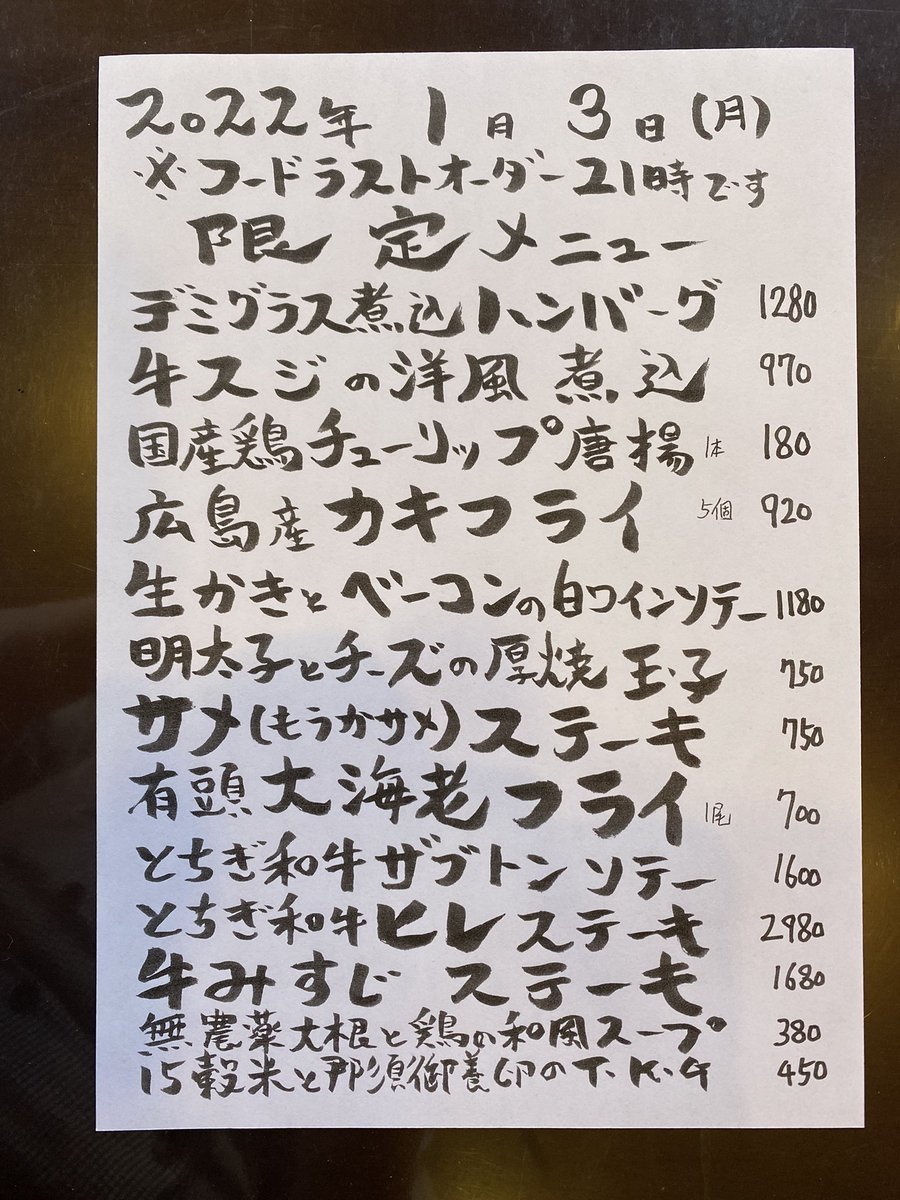 2022年 1月 3日(月)
※フードラストオーダー21時です
限定メニュー
デミグラス煮込ハンバーグ 1280
牛スジの洋風煮込 970
国産鶏チューリップ唐揚 1本 180
広島産カキフライ 5個 920
生かきとベーコンの白ワインソテー 1180
明太子とチーズの厚焼玉子 750
サメ(もうかサメ)ステーキ 750
有頭大海老フライ 1尾 700
とちぎ和牛ザブトンソテー 1600
とちぎ和牛ヒレステーキ 2980
牛みすじステーキ 1680
無農薬大根と鶏の和風スープ 380
15穀米と那須御養卵のT.K.G 450